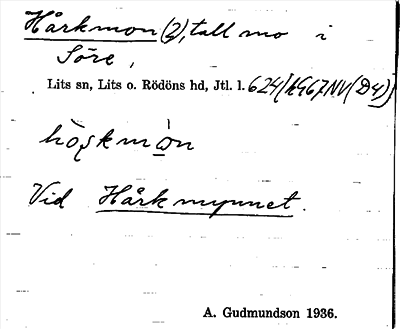 Hårkmon (2), tallmo i
Söre,
Lits sn, Lits o. Rödöns hd, Jtl. l. 624 [19G67NV (D4)]
Vid Hårkmynnet.
A. Gudmundson 1936.